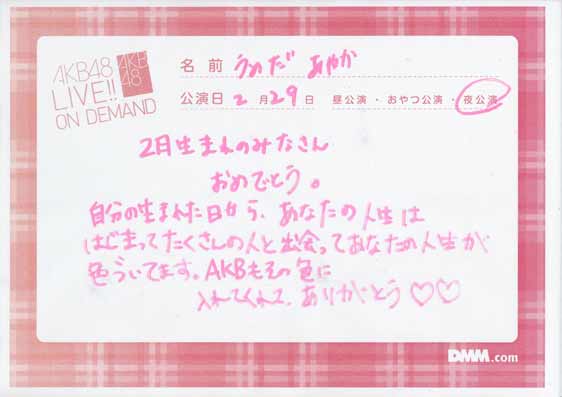 AKB48
LIVE!!
ON DEMAND
AKB
48
名前 うめだ あやか
公演日 2月29日 昼公演・おやつ公演・夜公演
2月生まれのみなさん
おめでとう。
自分の生まれた日から、あなたの人生は
はじまってたくさんの人と出会ってあなたの人生が
色づいてます。AKBもその色に
入れてくれて、ありがとう♡♡
DMM.com